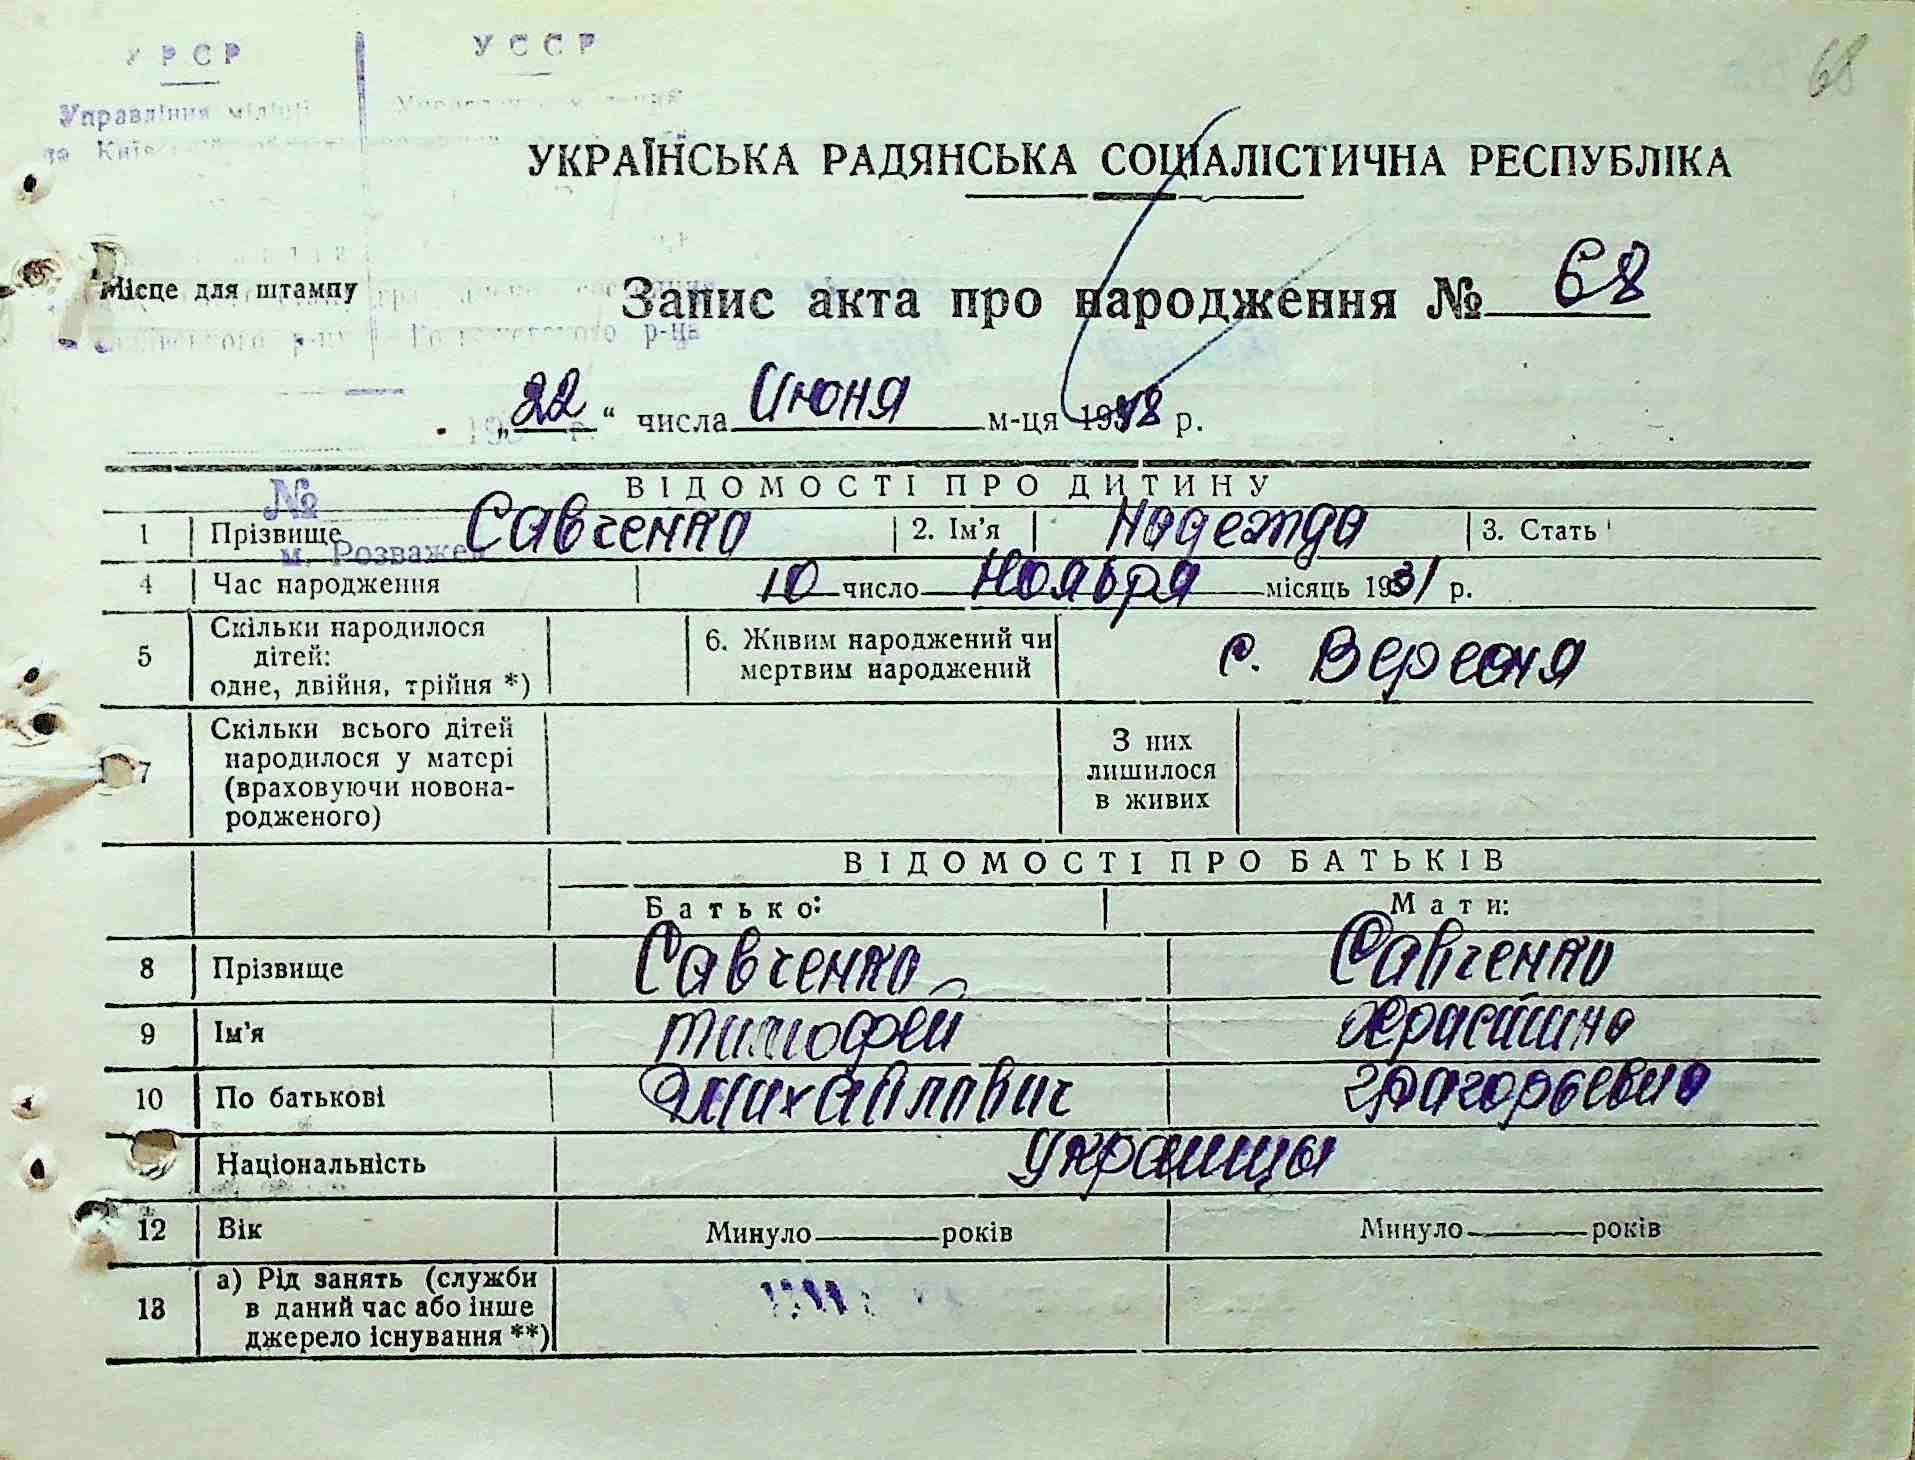 УРСР УССР
68
Управління міліції
УКРАЇНСЬКА РАДЯНСЬКА СОЦІАЛІСТИЧНА РЕСПУБЛІКА
Місце для штампу
Запис акта про народження № 68
р-ну р-на
„22“ числа Июня м-ця 1948 р.
ВІДОМОСТІ ПРО ДИТИНУ
№
1 Прізвище Савченко 2. Ім'я Надежда 3. Стать
м. Розважев
4 Час народження 10 число Ноября місяць 1931 р.
5 Скільки народилося дітей: одне, двійня, трійня *) 6. Живим народжений чи мертвим народжений с. Вересня
7 Скільки всього дітей народилося у матері (враховуючи новона-родженого) З них лишилося в живих
ВІДОМОСТІ ПРО БАТЬКІВ
Батько: Мати:
8 Прізвище Савченко Савченко
9 Ім'я Тимофей
10 По батькові Михайлович Григорьевна
Національність Украинцы
12 Вік Минуло років Минуло років
13 а) Рід занять (служби в даний час або інше джерело існування **)